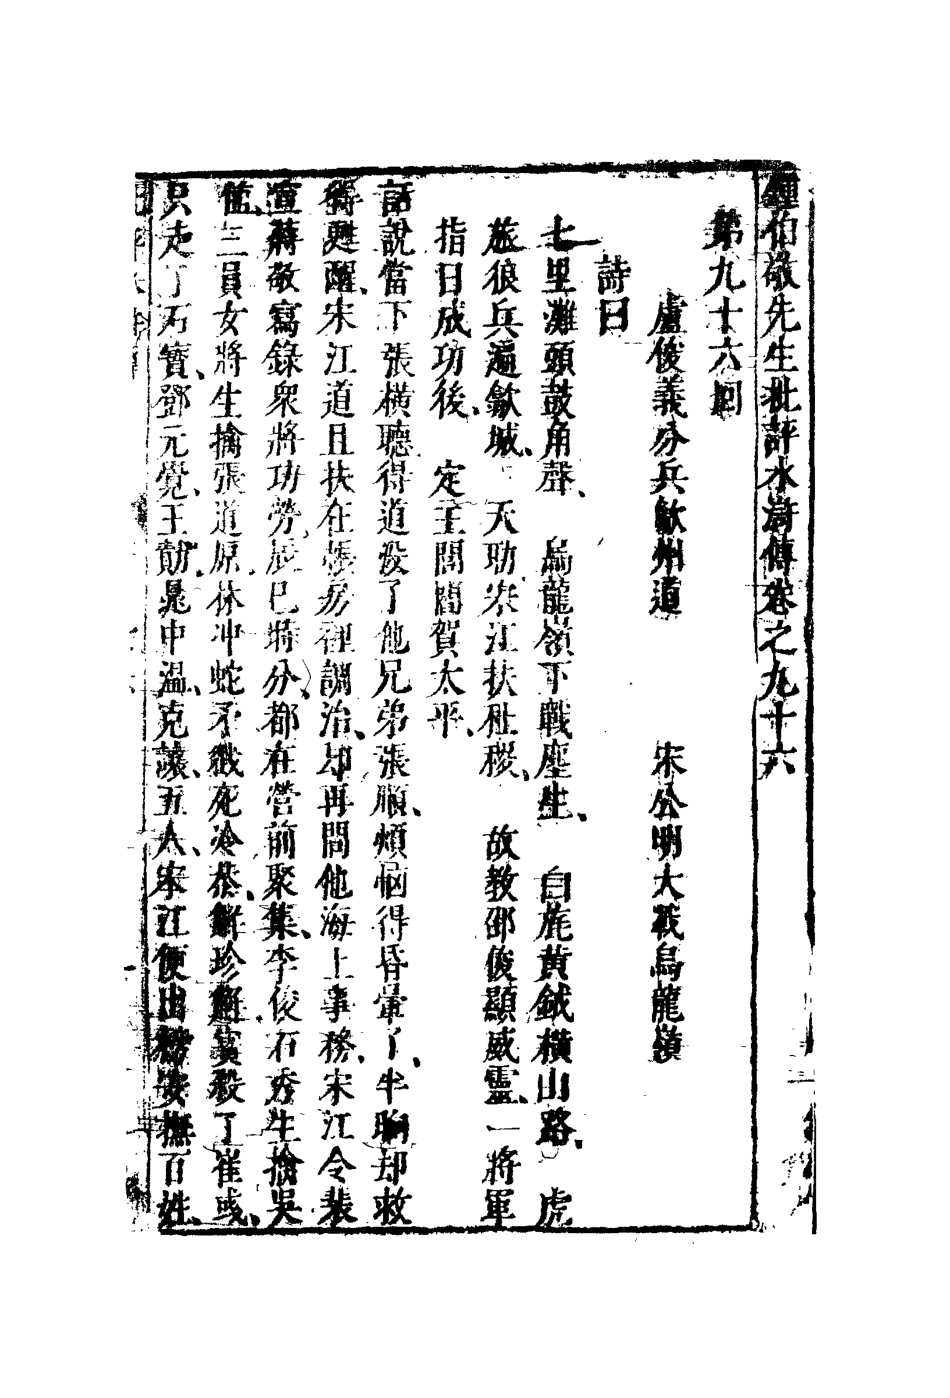 鍾伯敬先生批評水滸傳卷之九十六
第九十六囘
盧俊義分兵歙州道　宋公明大戰烏龍嶺
詩曰
七里灘頭鼓角聲、烏龍嶺下戰塵生、白旄黃鉞橫山路、虎
旅狼兵遍歙城、天助宋江扶社稷、故教邵俊顯威靈、一將軍
指日成功後、定王關閣賀太平、
話說當下張橫聽得道沒了他兄弟張順、煩惱得昏暈了、半晌却救
得甦醒、宋江道且扶在帳房裡調治、却再問他海上事務、宋江令裴
宣蔣敬寫錄衆將功勞、辰巳將分、都在營前聚集、李俊石秀生擒吳
値、三員女將生擒張道原、林冲蛇矛戳死冷恭、解珍解寶殺了崔彧、
只走了石寶、鄧元覺、王勣、晁中、温克讓、五人、宋江便出榜安撫百姓、